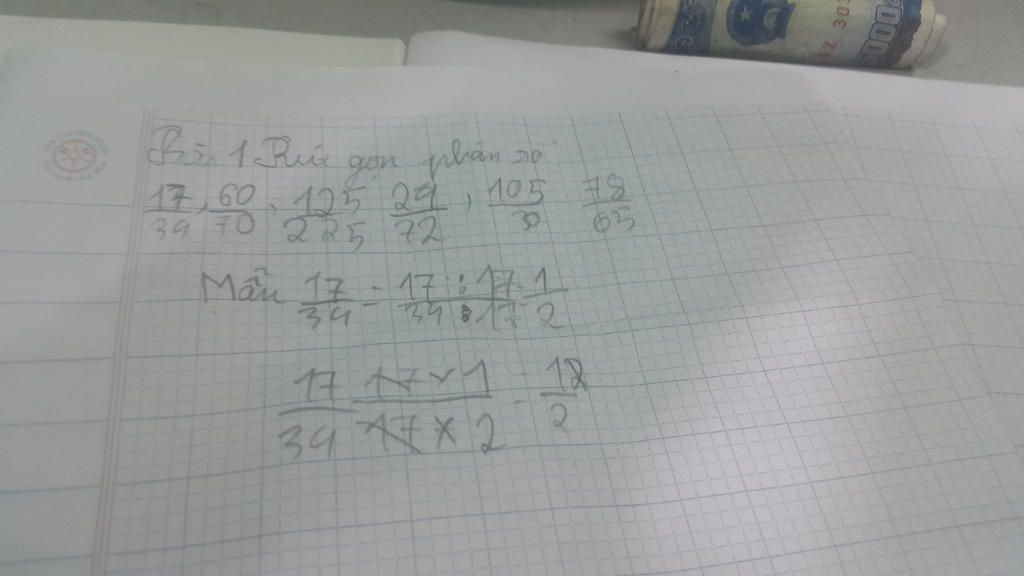 Bài 1 Rút gọn phân số
17/34, 60/70, 125/225 24/72, 105/30 78/65
Mẫu 17/34 = 17 : 17/34 : 17 = 1/2
17/34 17 x 1/17 x 2 = 1/2
000